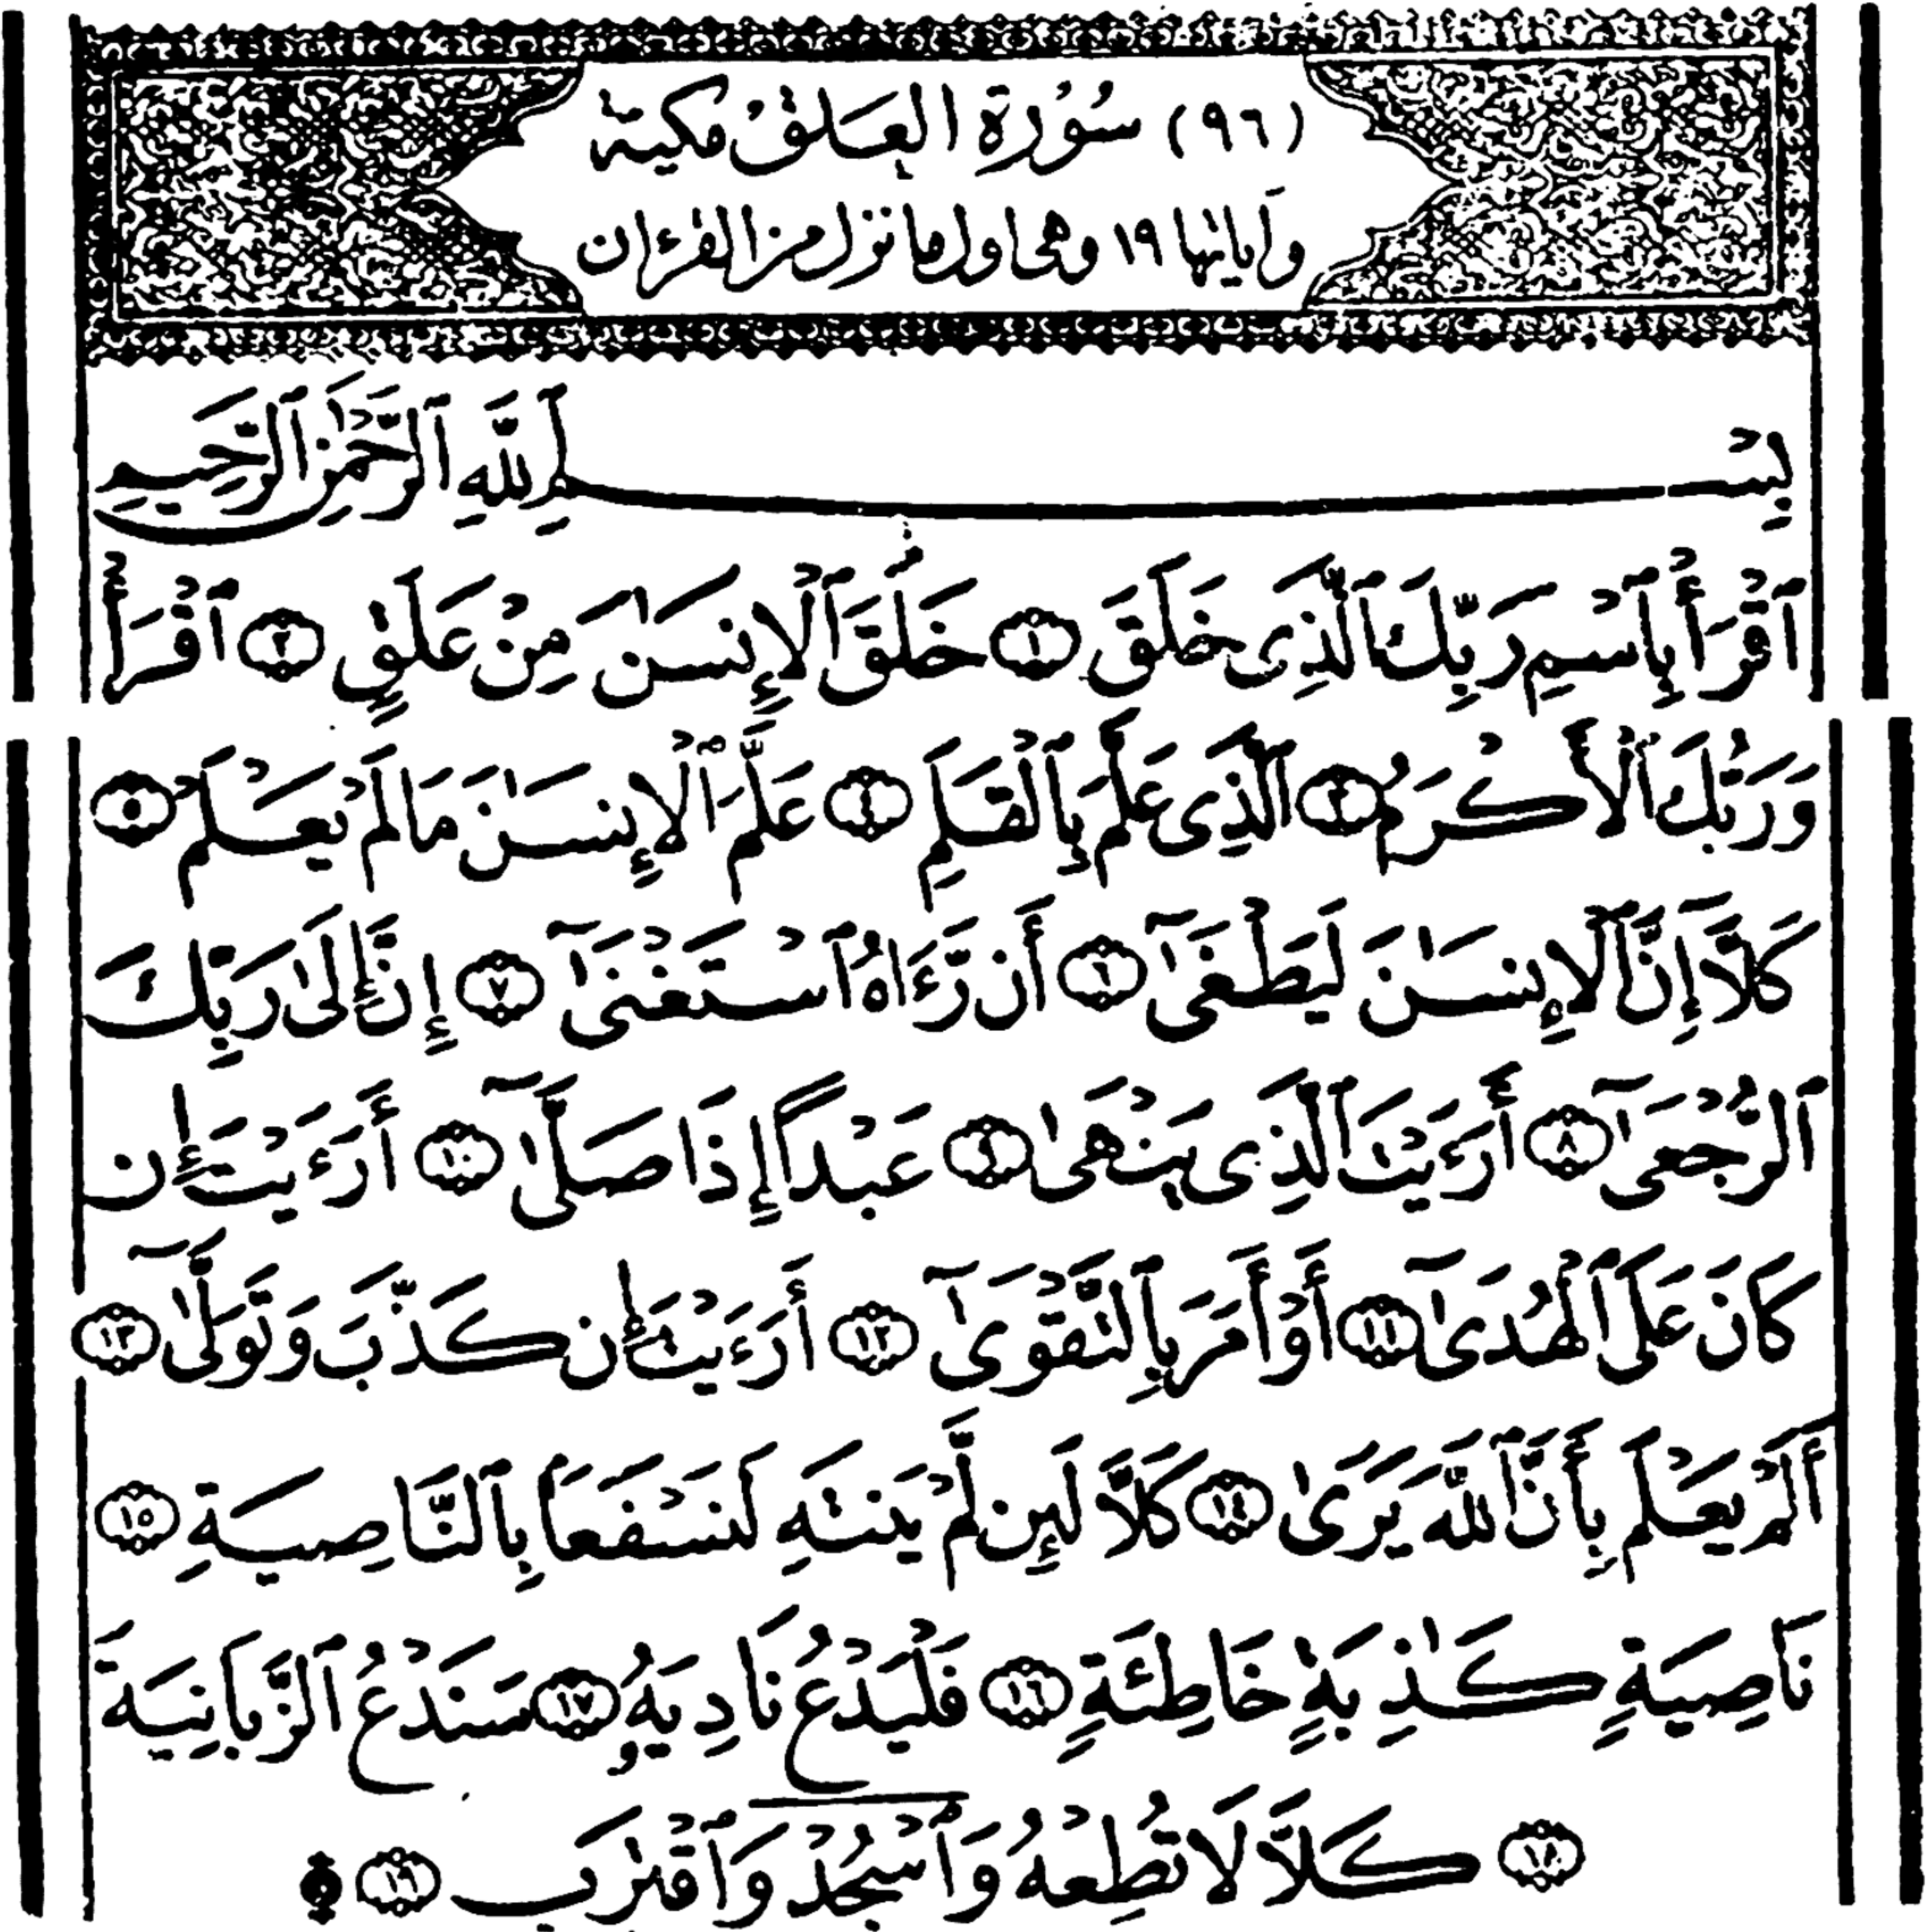 (٩٦) سُورة العَلق مكية
وَآياتها ١٩ وهى اول ما نزل من القرءان
بِسْمِ ٱللَّهِ ٱلرَّحْمَٰنِ ٱلرَّحِيمِ
ٱقْرَأْ بِٱسْمِ رَبِّكَ ٱلَّذِى خَلَقَ ۝١ خَلَقَ ٱلْإِنسَٰنَ مِنْ عَلَقٍ ۝٢ ٱقْرَأْ
وَرَبُّكَ ٱلْأَكْرَمُ ۝٣ ٱلَّذِى عَلَّمَ بِٱلْقَلَمِ ۝٤ عَلَّمَ ٱلْإِنسَٰنَ مَا لَمْ يَعْلَمْ ۝٥
كَلَّآ إِنَّ ٱلْإِنسَٰنَ لَيَطْغَىٰٓ ۝٦ أَن رَّءَاهُ ٱسْتَغْنَىٰٓ ۝٧ إِنَّ إِلَىٰ رَبِّكَ
ٱلرُّجْعَىٰٓ ۝٨ أَرَءَيْتَ ٱلَّذِى يَنْهَىٰ ۝٩ عَبْدًا إِذَا صَلَّىٰٓ ۝١٠ أَرَءَيْتَ إِن
كَانَ عَلَى ٱلْهُدَىٰٓ ۝١١ أَوْ أَمَرَ بِٱلتَّقْوَىٰٓ ۝١٢ أَرَءَيْتَ إِن كَذَّبَ وَتَوَلَّىٰٓ ۝١٣
أَلَمْ يَعْلَم بِأَنَّ ٱللَّهَ يَرَىٰ ۝١٤ كَلَّا لَئِن لَّمْ يَنتَهِ لَنَسْفَعًا بِٱلنَّاصِيَةِ ۝١٥
نَاصِيَةٍ كَٰذِبَةٍ خَاطِئَةٍ ۝١٦ فَلْيَدْعُ نَادِيَهُۥ ۝١٧ سَنَدْعُ ٱلزَّبَانِيَةَ
۝١٨ كَلَّا لَا تُطِعْهُ وَٱسْجُدْ وَٱقْتَرِب ۝١٩